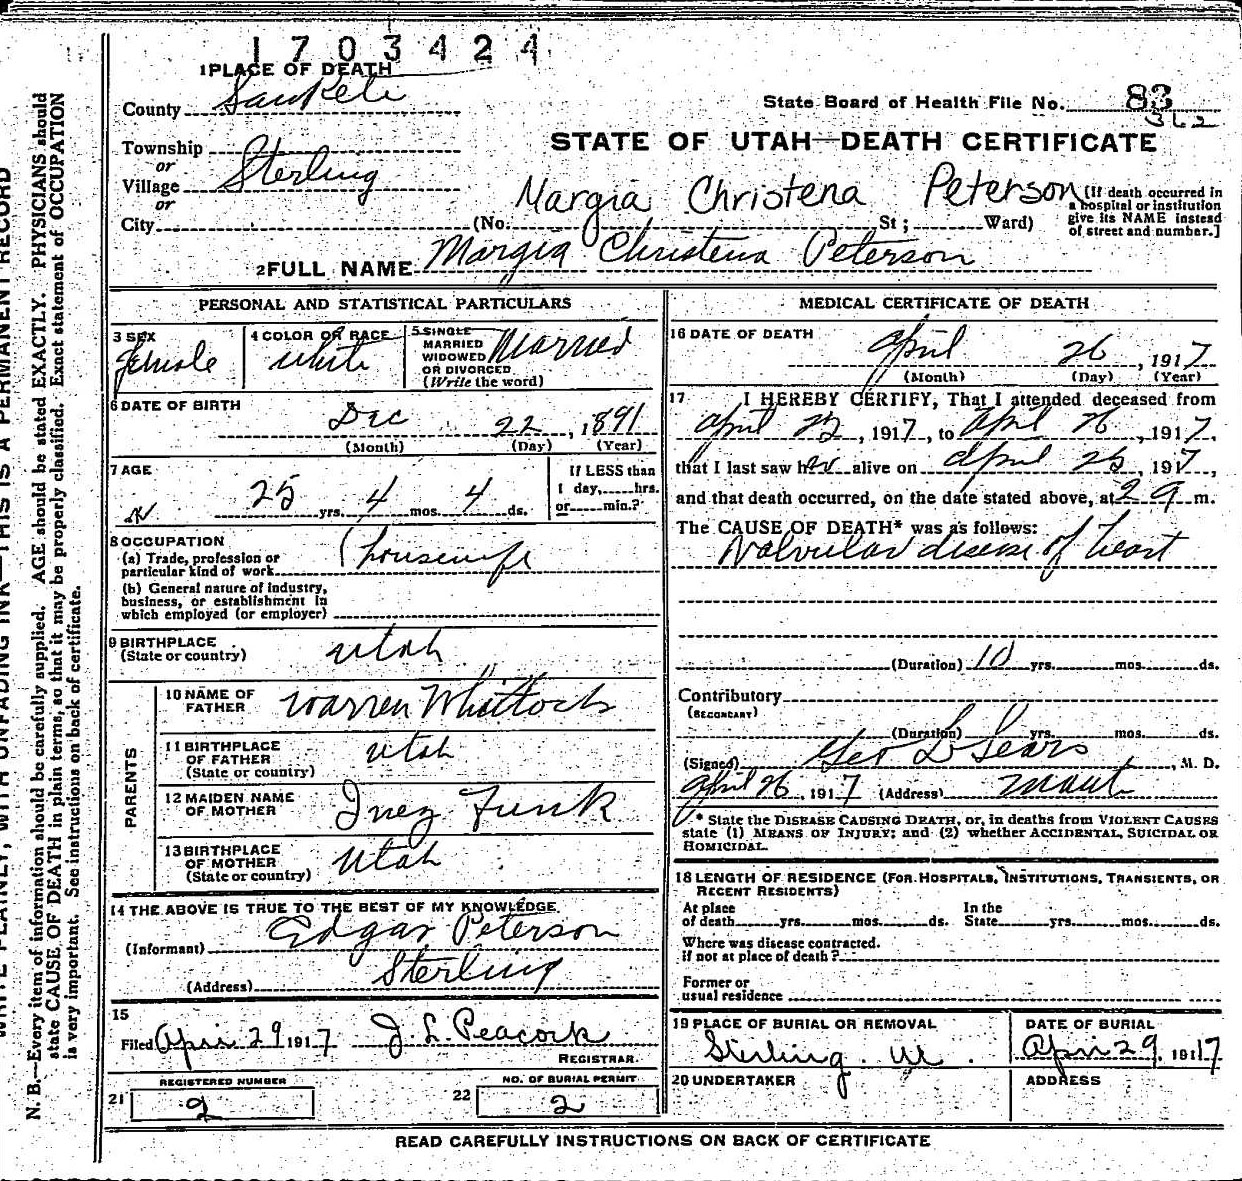 1703424
1 PLACE OF DEATH
County Sanpete
State Board of Health File No. 83
362
STATE OF UTAH—DEATH CERTIFICATE
Township
or
Village Sterling
or
City (No. Margia Christena Peterson St; Ward)
[If death occurred in
a hospital or institution
give its NAME instead
of street and number.]
2 FULL NAME Margia Christena Peterson
PERSONAL AND STATISTICAL PARTICULARS
3 SEX
female
4 COLOR OR RACE
white
5 SINGLE
MARRIED
WIDOWED
OR DIVORCED
(Write the word)
Married
6 DATE OF BIRTH
Dec 22, 1891
(Month) (Day) (Year)
7 AGE
25 yrs. 4 mos. 4 ds.
If LESS than
1 day, hrs.
or min.?
8 OCCUPATION
(a) Trade, profession or
particular kind of work housewife
(b) General nature of industry,
business, or establishment in
which employed (or employer)
9 BIRTHPLACE
(State or country) Utah
PARENTS
10 NAME OF
FATHER Warren Whitlock
11 BIRTHPLACE
OF FATHER
(State or country) Utah
12 MAIDEN NAME
OF MOTHER Inez Funk
13 BIRTHPLACE
OF MOTHER
(State or country) Utah
14 THE ABOVE IS TRUE TO THE BEST OF MY KNOWLEDGE
(Informant) Edgar Peterson
(Address) Sterling
15
Filed April 29 1917 J. L. Peacock
REGISTRAR
REGISTERED NUMBER
21 2
NO. OF BURIAL PERMIT
22 2
MEDICAL CERTIFICATE OF DEATH
16 DATE OF DEATH
April 26, 1917
(Month) (Day) (Year)
17 I HEREBY CERTIFY, That I attended deceased from
April, 1917, to April 26, 1917,
that I last saw her alive on April 25, 1917,
and that death occurred, on the date stated above, at 2 a m.
The CAUSE OF DEATH* was as follows:
Valvular disease of heart
(Duration) 10 yrs. mos. ds.
Contributory
(SECONDARY)
(Duration) yrs. mos. ds.
(Signed) Geo L Sears, M. D.
April 26, 1917 (Address) Manti
* State the DISEASE CAUSING DEATH, or, in deaths from VIOLENT CAUSES
state (1) MEANS OF INJURY; and (2) whether ACCIDENTAL, SUICIDAL OR
HOMICIDAL.
18 LENGTH OF RESIDENCE (FOR HOSPITALS, INSTITUTIONS, TRANSIENTS, OR
RECENT RESIDENTS)
At place
of death yrs. mos. ds.
In the
State yrs. mos. ds.
Where was disease contracted.
if not at place of death?
Former or
usual residence
19 PLACE OF BURIAL OR REMOVAL
Sterling. Ut.
DATE OF BURIAL
April 29, 1917
20 UNDERTAKER
ADDRESS
READ CAREFULLY INSTRUCTIONS ON BACK OF CERTIFICATE
WRITE PLAINLY, WITH UNFADING INK—THIS IS A PERMANENT RECORD
N. B.—Every item of information should be carefully supplied. AGE should be stated EXACTLY. PHYSICIANS should
state CAUSE OF DEATH in plain terms, so that it may be properly classified. Exact statement of OCCUPATION
is very important. See instructions on back of certificate.